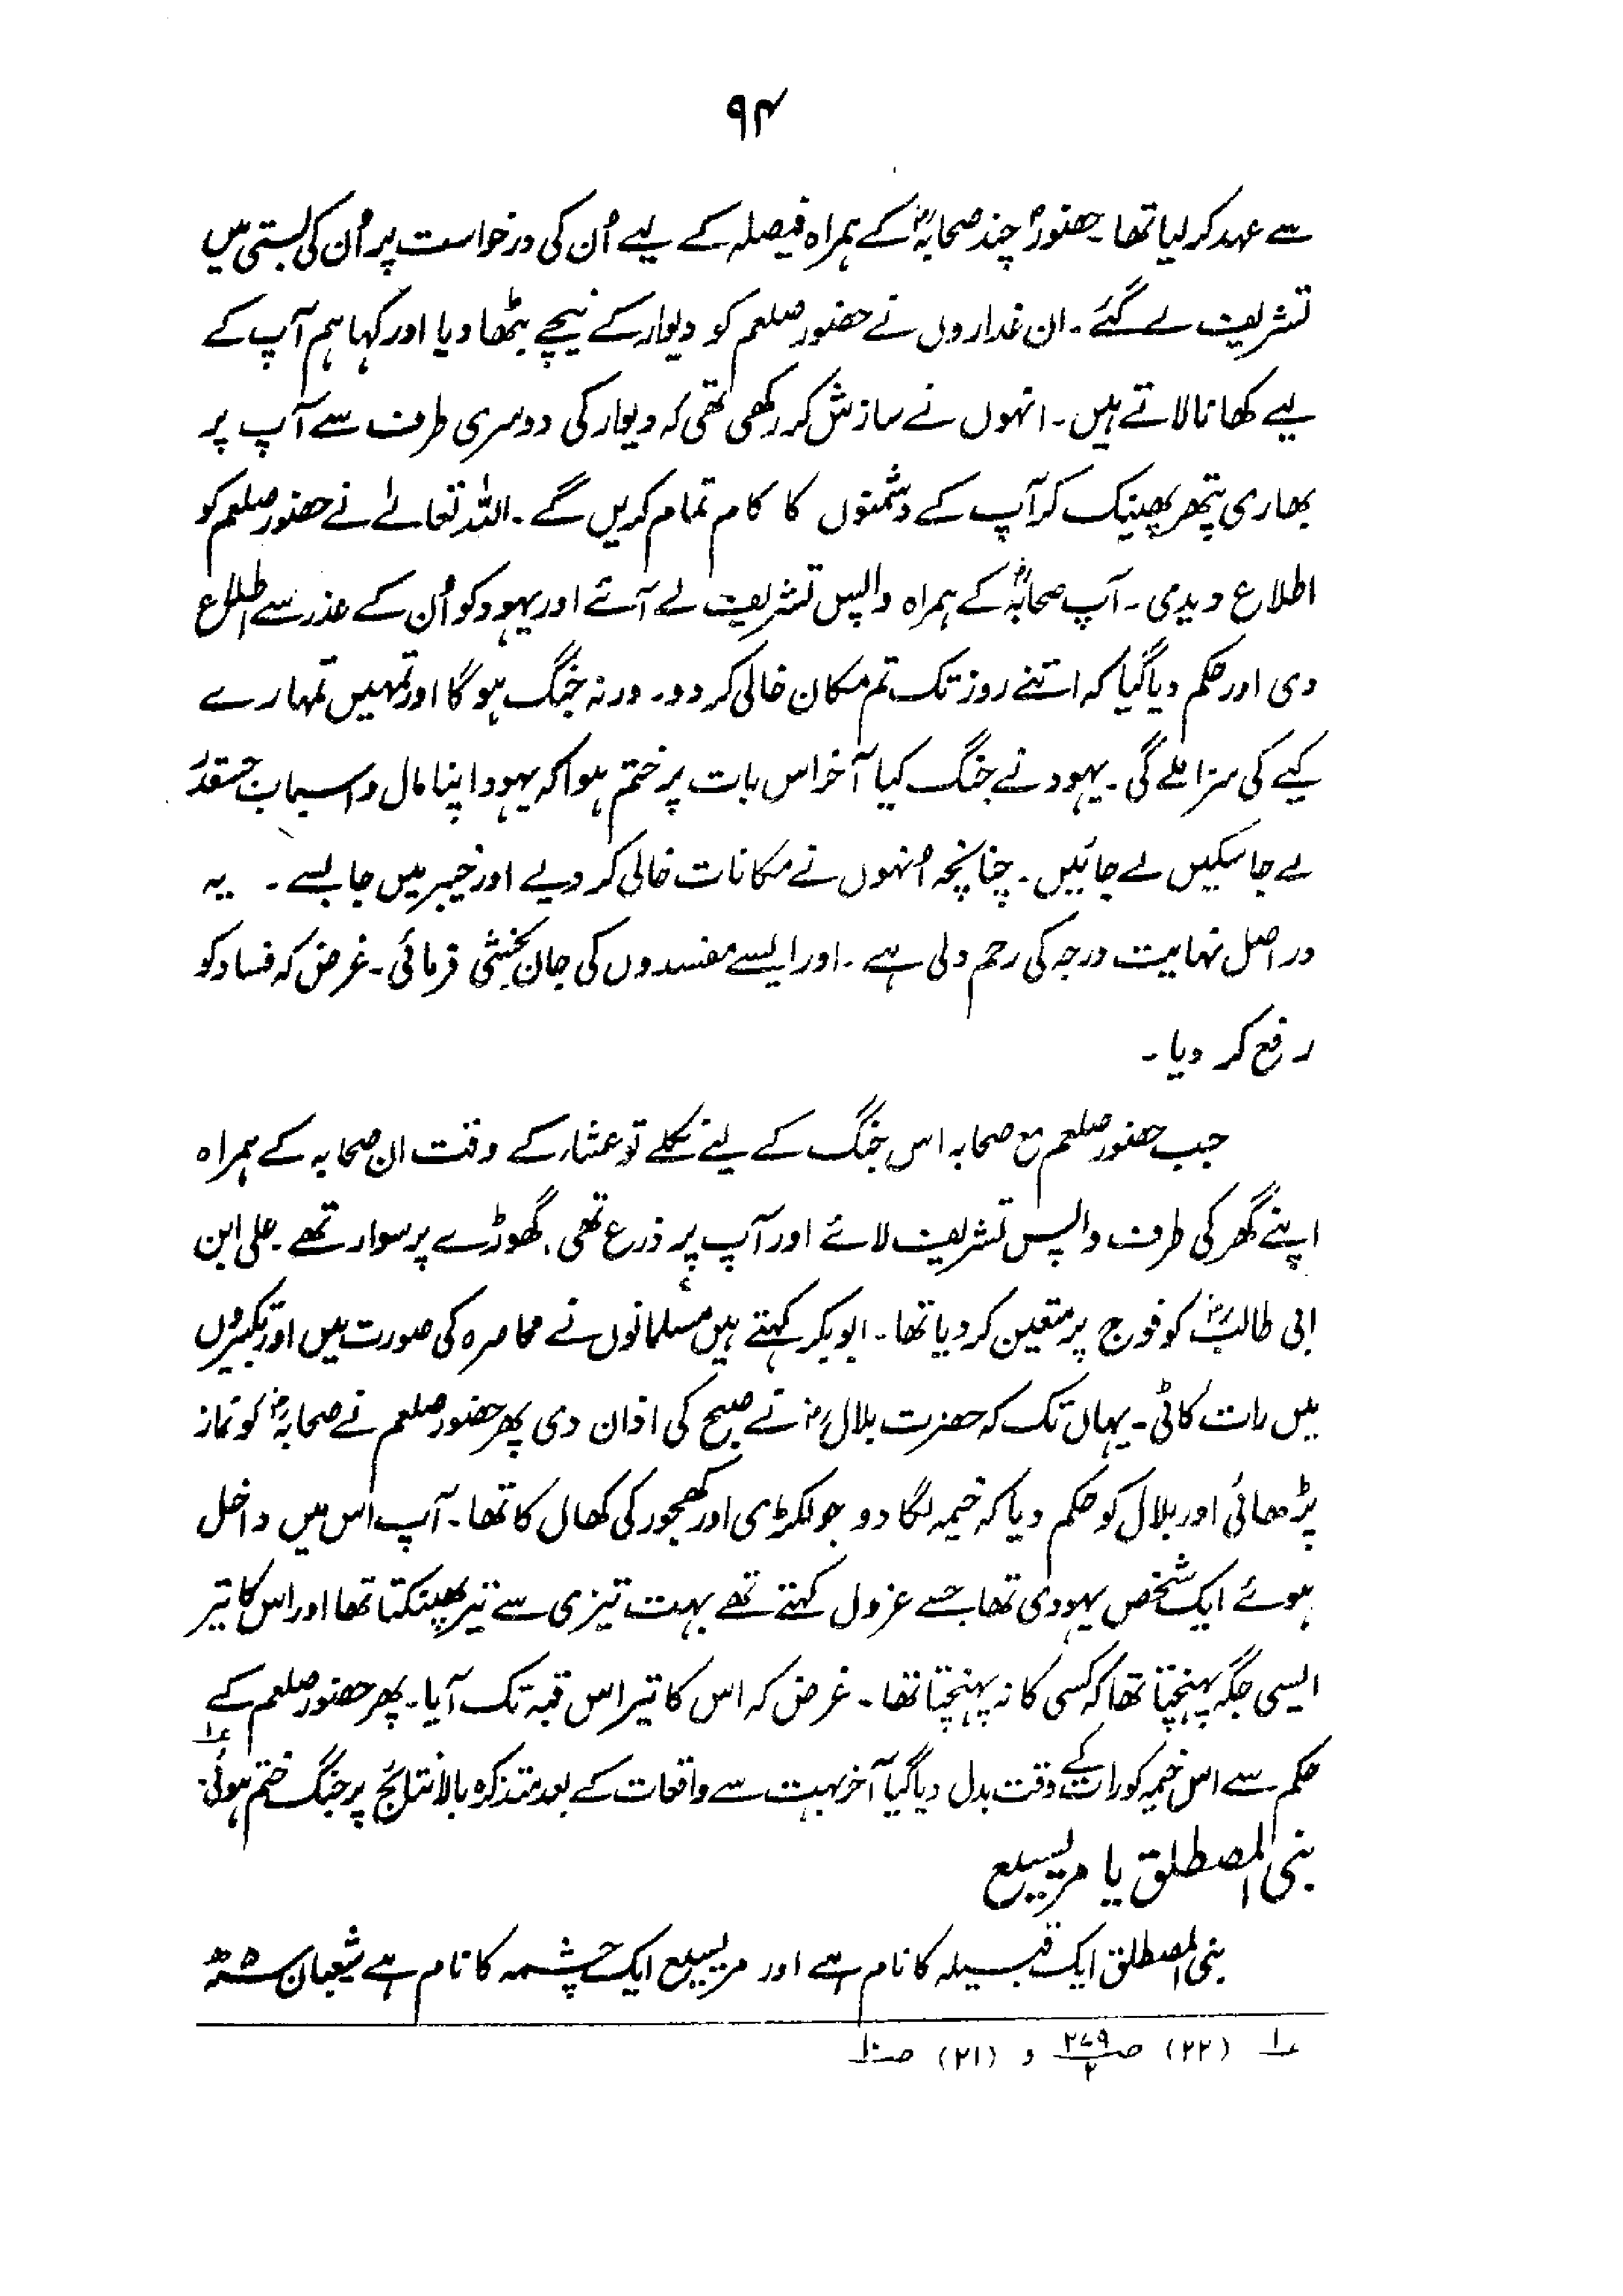 ۹۴
سے عہد کر لیا تھا۔ حضورؐ چند صحابہؓ کے ہمراہ فیصلہ کے لیے اُن کی درخواست پر اُن کی بستی میں
تشریف لے گئے۔ ان غداروں نے حضور صلعم کو دیوار کے نیچے بٹھا دیا اور کہا ہم آپ کے
لیے کھانا لاتے ہیں۔ انہوں نے سازش کر رکھی تھی کہ دیوار کی دوسری طرف سے آپ پر
بھاری پتھر پھینک کر آپ کے دشمنوں کا کام تمام کریں گے۔ اللہ تعالےٰ نے حضور صلعم کو
اطلاع دیدی۔ آپ صحابہؓ کے ہمراہ واپس تشریف لے آئے اور یہود کو اُن کے عذر سے اطلاع
دی اور حکم دیا گیا کہ اتنے روز تک تم مکان خالی کر دو۔ ورنہ جنگ ہوگا اور تمہیں تمہارے
کیے کی سزا ملے گی۔ یہود نے جنگ کیا آخر اس بات پر ختم ہوا کہ یہود اپنا مال و اسباب جسقدر
لے جا سکیں لے جائیں۔ چنانچہ اُنہوں نے مکانات خالی کر دیے اور خیبر میں جا بسے۔ یہ
دراصل نہایت درجہ کی رحم دلی ہے۔ اور ایسے مفسدوں کی جان بخشی فرمائی۔ غرض کہ فساد کو
رفع کر دیا۔
جب حضور صلعم مع صحابہ اس جنگ کے لیے نکلے تو عشاء کے وقت ان صحابہ کے ہمراہ
اپنے گھر کی طرف واپس تشریف لائے اور آپ پر ذرع تھی۔ گھوڑے پر سوار تھے۔ علی ابن
ابی طالبؓ کو فوج پر متعین کر دیا تھا۔ ابوبکر کہتے ہیں مسلمانوں نے محاصرہ کی صورت میں اور تکبیروں
میں رات کاٹی۔ یہاں تک کہ حضرت بلالؓ نے صبح کی اذان دی پھر حضور صلعم نے صحابہؓ کو نماز
پڑھائی اور بلال کو حکم دیا کہ خیمہ لگا دو جو لکڑی اور کھجور کی کھال کا تھا۔ آپ اس میں داخل
ہوئے ایک شخص یہودی تھا جسے عزول کہتے تھے بہت تیزی سے تیر پھینکتا تھا اور اس کا تیر
ایسی جگہ پہنچتا تھا کہ کسی کا نہ پہنچتا تھا۔ غرض کہ اس کا تیر اس قبہ تک آیا۔ پھر حضور صلعم کے
حکم سے اس خیمہ کو رات کے وقت بدل دیا گیا آخر بہت سے واقعات کے بعد متذکرہ بالا نتائج پر جنگ ختم ہوئی۔ ؏۱
بنی المصطلق یا مریسیع
بنی المصطلق ایک قبیلہ کا نام ہے اور مریسیع ایک چشمہ کا نام ہے شعبان ۵ھ
؏۱ (۲۲) ص ۲۷۹/۲ و (۲۱) ص ۱۰